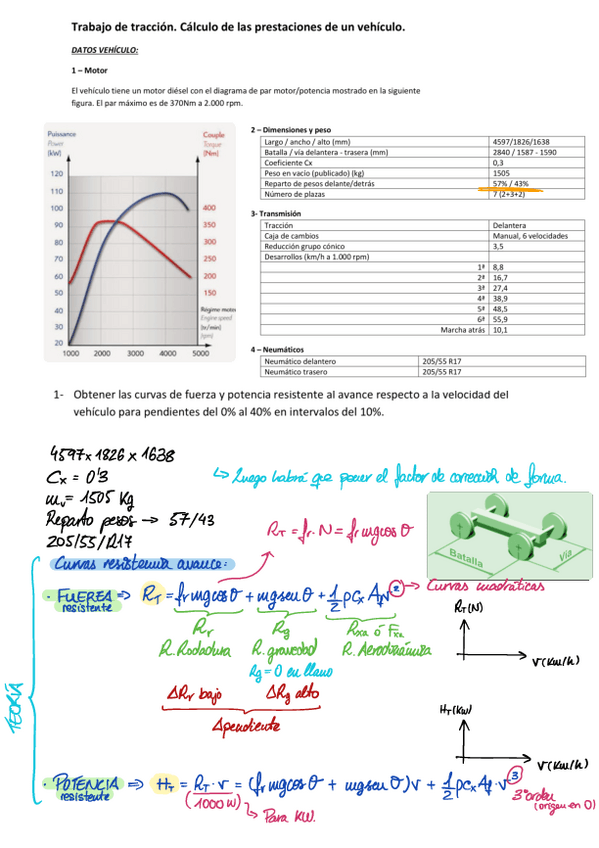 Trabajo de tracción. Cálculo de las prestaciones de un vehículo.
DATOS VEHÍCULO:
1 – Motor
El vehículo tiene un motor diésel con el diagrama de par motor/potencia mostrado en la siguiente
figura. El par máximo es de 370Nm a 2.000 rpm.
Puissance
Power
(kW)
Couple
Torque
(Nm)
120
110
100
90
80
70
60
50
40
30
20
400
350
300
250
200
150
Régime moteur
Engine speed
(tr/min)
(rpm)
1000 2000 3000 4000 5000
2 – Dimensiones y peso
Largo / ancho / alto (mm) 4597/1826/1638
Batalla / vía delantera - trasera (mm) 2840 / 1587 - 1590
Coeficiente Cx 0,3
Peso en vacío (publicado) (kg) 1505
Reparto de pesos delante/detrás 57% / 43%
Número de plazas 7 (2+3+2)
3- Transmisión
Tracción Delantera
Caja de cambios Manual, 6 velocidades
Reducción grupo cónico 3,5
Desarrollos (km/h a 1.000 rpm)
1ª 8,8
2ª 16,7
3ª 27,4
4ª 38,9
5ª 48,5
6ª 55,9
Marcha atrás 10,1
4 – Neumáticos
Neumático delantero 205/55 R17
Neumático trasero 205/55 R17
1- Obtener las curvas de fuerza y potencia resistente al avance respecto a la velocidad del
vehículo para pendientes del 0% al 40% en intervalos del 10%.
4597 x 1826 x 1638
Cx = 0'3
mv = 1505 Kg
Reparto pesos → 57/43
205/55/R17
↳ Luego habrá que poner el factor de corrección de forma.
RT = fr·N = fr mg cos θ
Batalla
Vía
Curvas resistencia avance:
· FUERZA resistente ⇒ RT = fr mg cos θ + mg sen θ + 1/2 ρ Cx Af v² → Curvas cuadráticas
Rr Rg Rxa ó Fxa
R. Rodadura R. gravedad R. Aerodinámica
Rg = 0 en llano
ΔRr bajo ΔRg alto
Δpendiente
RT (N)
V (Km/h)
HT (Kw)
V (Km/h)
TEORÍA
· POTENCIA resistente ⇒ HT = RT · v / (1000 W) = (fr mg cos θ + mg sen θ) v + 1/2 ρ Cx Af · v³
↳ Para KW.
3º orden
(origen en 0)